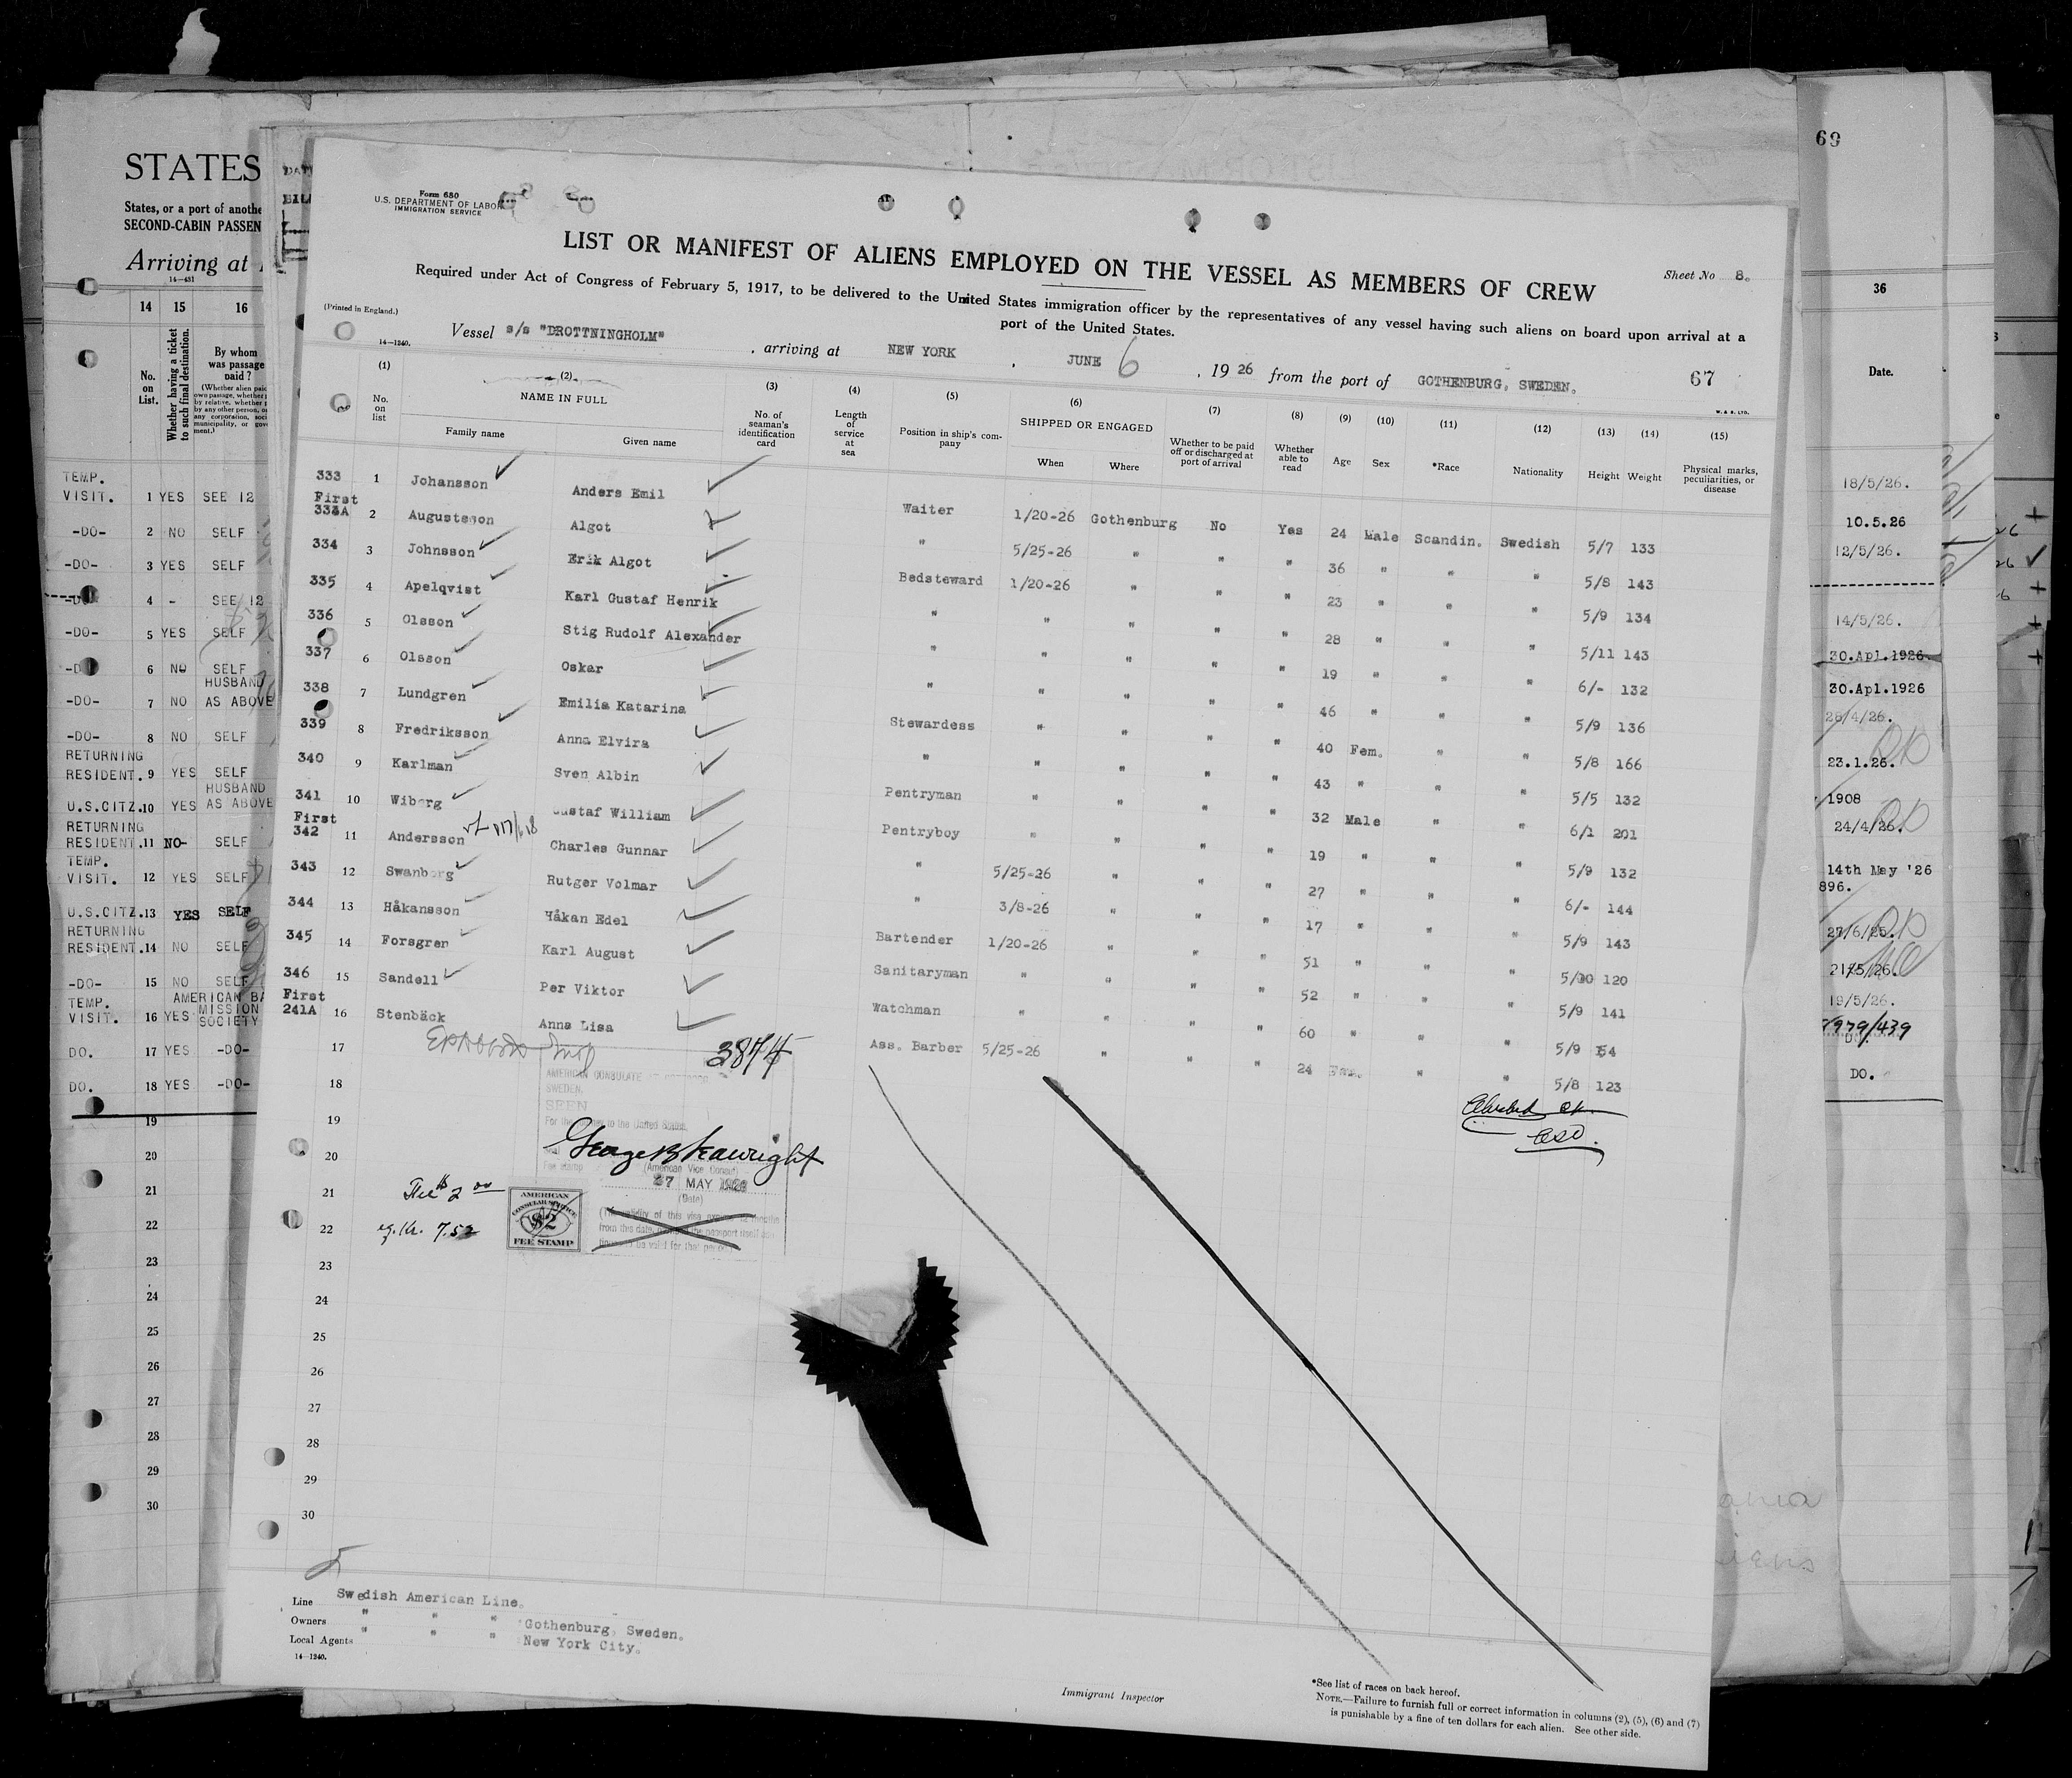 STATES
States, or a port of anothe
SECOND-CABIN PASSEN
Arriving at
14-481
14 15 16
No. on List.
Whether having a ticket to such final destination.
By whom was passage paid?
TEMP.
VISIT. 1 YES SEE 12
-DO- 2 NO SELF
-DO- 3 YES SELF
4 - SEE 12
-DO- 5 YES SELF
6 NO SELF
HUSBAND
-DO- 7 NO AS ABOVE
-DO- 8 NO SELF
RETURNING
RESIDENT. 9 YES SELF
HUSBAND
U.S.CITZ. 10 YES AS ABOVE
RETURNING
RESIDENT. 11 NO- SELF
TEMP.
VISIT. 12 YES SELF
U.S.CITZ. 13 YES SELF
RETURNING
RESIDENT. 14 NO SELF
-DO- 15 NO SELF
TEMP. AMERICAN BA
VISIT. 16 YES MISSION
SOCIETY
DO. 17 YES -DO-
DO. 18 YES -DO-
19
20
21
22
23
24
25
26
27
28
29
30
Form 680
U.S. DEPARTMENT OF LABOR
IMMIGRATION SERVICE
LIST OR MANIFEST OF ALIENS EMPLOYED ON THE VESSEL AS MEMBERS OF CREW
Sheet No 8.
Required under Act of Congress of February 5, 1917, to be delivered to the United States immigration officer by the representatives of any vessel having such aliens on board upon arrival at a
port of the United States.
(Printed in England.)
14-1240.
Vessel s/s "DROTTNINGHOLM", arriving at NEW YORK, JUNE 6, 1926 from the port of GOTHENBURG, SWEDEN. 67
W. & S. LTD.
(1) (2) (3) (4) (5) (6) (7) (8) (9) (10) (11) (12) (13) (14) (15)
No. on list
NAME IN FULL
Family name Given name
No. of seaman's identification card
Length of service at sea
Position in ship's company
SHIPPED OR ENGAGED
When Where
Whether to be paid off or discharged at port of arrival
Whether able to read
Age Sex *Race Nationality Height Weight
Physical marks, peculiarities, or disease
333 1 Johansson Anders Emil Waiter 1/20-26 Gothenburg No Yes 24 Male Scandin. Swedish 5/7 133
First
333A 2 Augustsson Algot " 5/25-26 " " " 36 " " " 5/8 143
334 3 Johnsson Erik Algot Bedsteward 1/20-26 " " " 23 " " " 5/9 134
335 4 Apelqvist Karl Gustaf Henrik " " " " " 28 " " " 5/11 143
336 5 Olsson Stig Rudolf Alexander " " " " " 19 " " " 6/- 132
337 6 Olsson Oskar " " " " " 46 " " " 5/9 136
338 7 Lundgren Emilia Katarina Stewardess " " " " 40 Fem. " " 5/8 166
339 8 Fredriksson Anna Elvira " " " " " 43 " " " 5/5 132
340 9 Karlman Sven Albin Pentryman " " " " 32 Male " " 6/1 201
341 10 Wiberg Gustaf William Pentryboy " " " " 19 " " " 5/9 132
First
342 11 Andersson Charles Gunnar " 5/25-26 " " " 27 " " " 6/- 144
343 12 Swanberg Rutger Volmar " 3/8-26 " " " 17 " " " 5/9 143
344 13 Håkansson Håkan Edel Bartender 1/20-26 " " " 51 " " " 5/10 120
345 14 Forsgren Karl August Sanitaryman " " " " 52 " " " 5/9 141
346 15 Sandell Per Viktor Watchman " " " " 60 " " " 5/9 154
First
241A 16 Stenbäck Anna Lisa Ass. Barber 5/25-26 " " " 24 Fem. " " 5/8 123
17
18
19
20
21
22
23
24
25
26
27
28
29
30
AMERICAN CONSULATE
SWEDEN.
SEEN
For the to the United States.
(American Vice Consul)
Fee stamp
27 MAY 1926
(Date)
Fee $ 2 00
eq. Kr. 7.52
AMERICAN
CONSULAR SERVICE
$2
FEE STAMP
(The validity of this visa
Line Swedish American Line.
Owners " " " Gothenburg, Sweden.
Local Agents " " " New York City.
14-1240.
Immigrant Inspector
*See list of races on back hereof.
NOTE.—Failure to furnish full or correct information in columns (2), (5), (6) and (7)
is punishable by a fine of ten dollars for each alien. See other side.
69
36
Date.
18/5/26.
10.5.26
12/5/26.
14/5/26.
30.Apl.1926.
30.Apl.1926
28/4/26.
23.1.26.
1908
24/4/26.
14th May '26
896.
19/5/26.
DO.